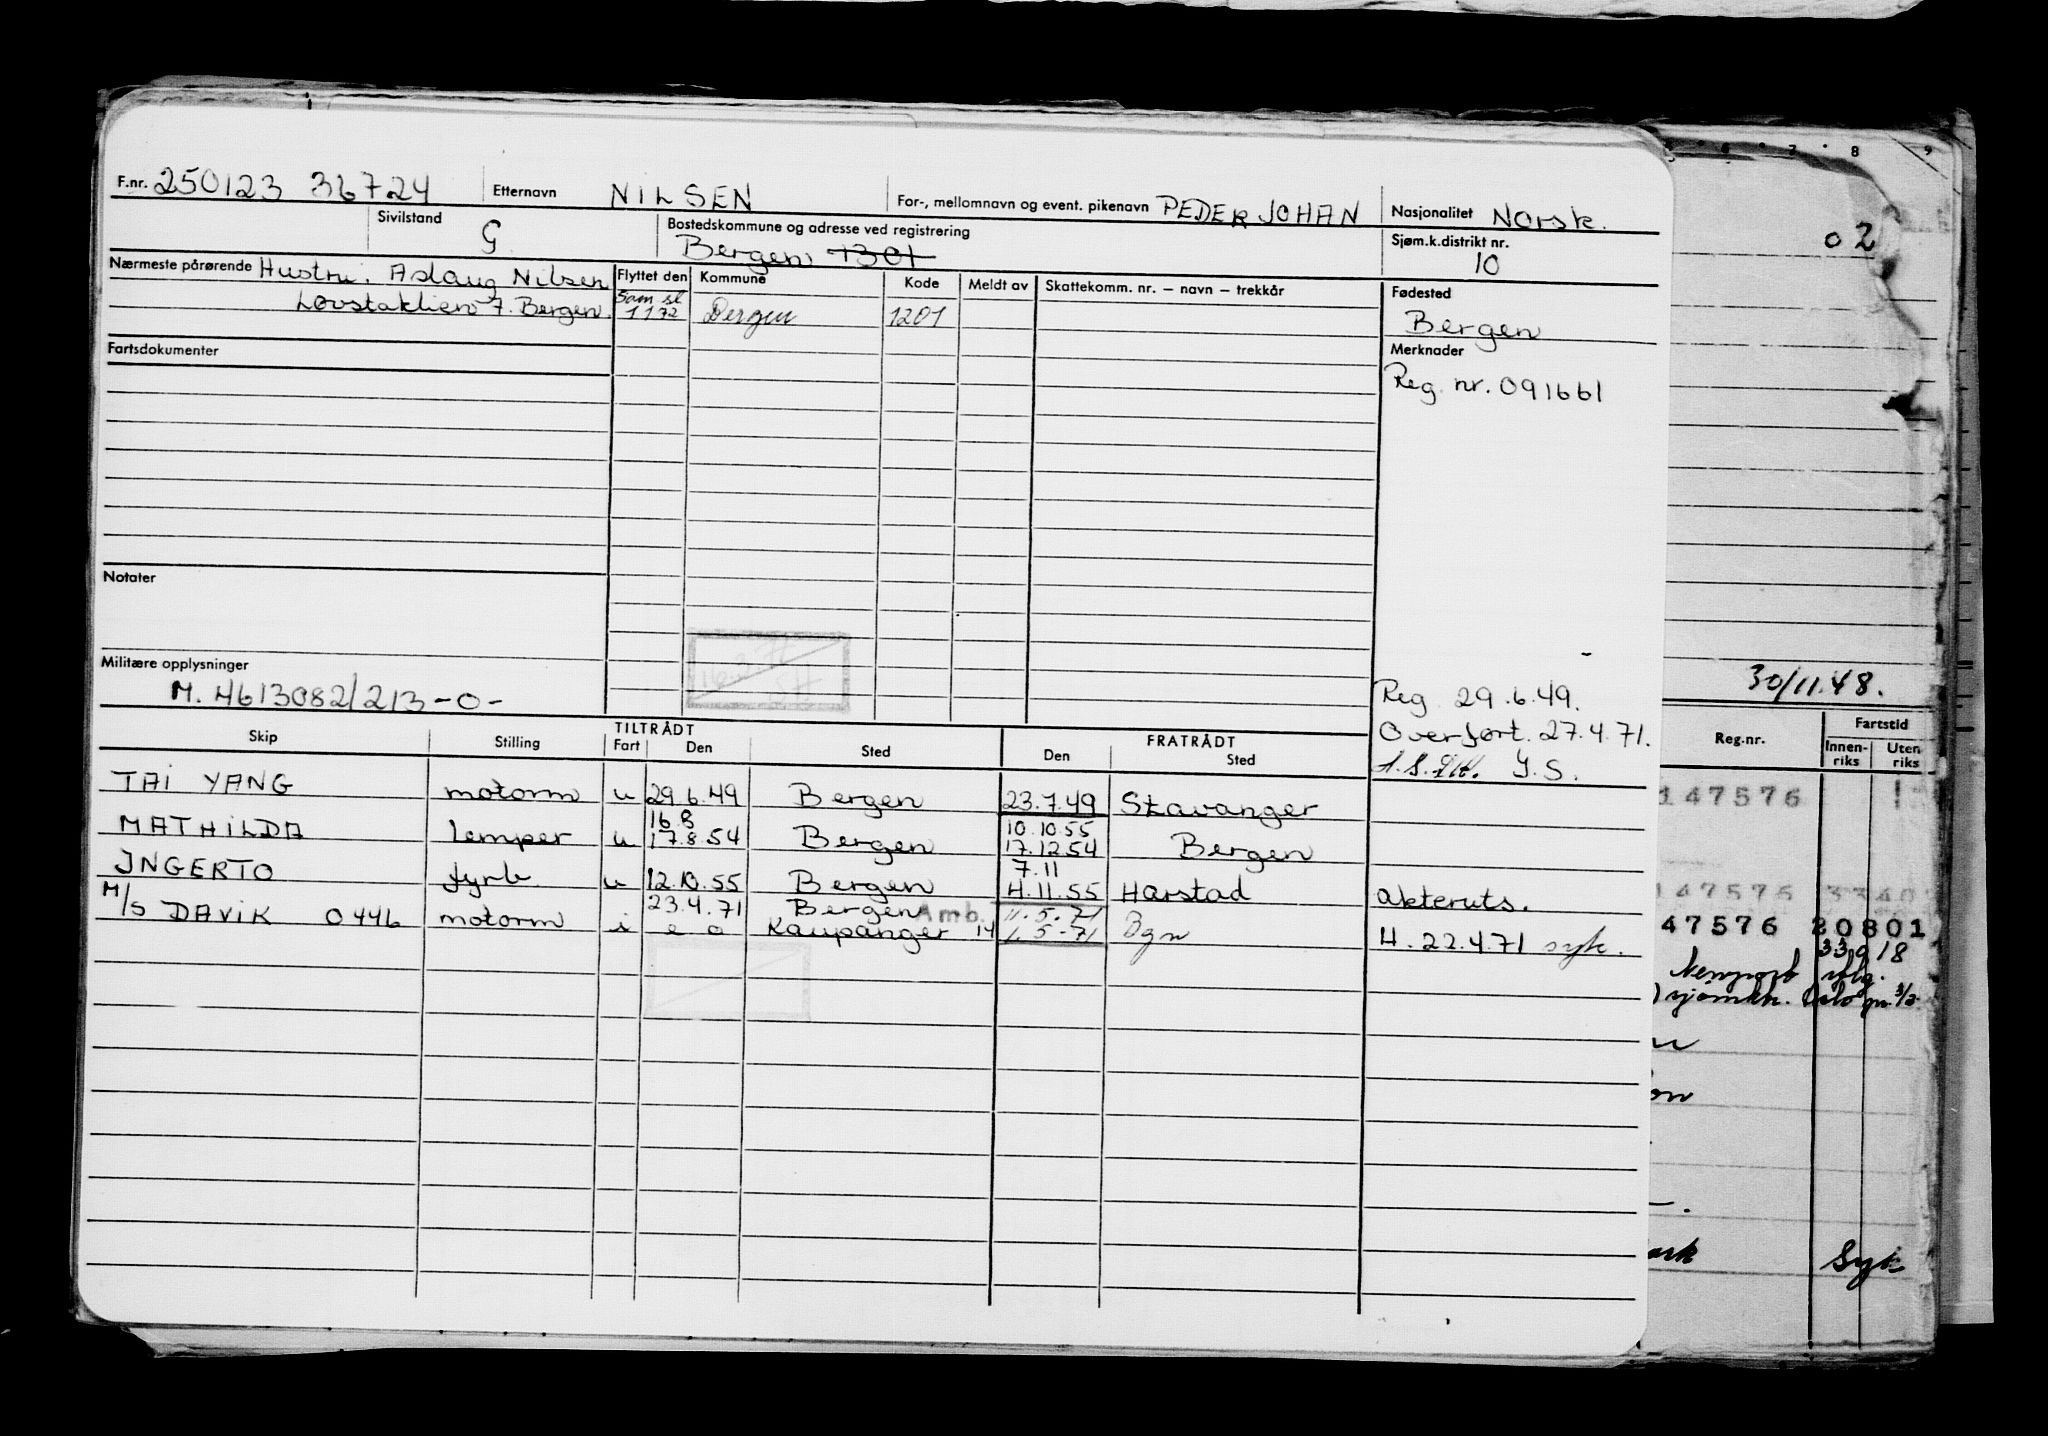 F.nr. 250123 36724 Etternavn NILSEN For-, mellomnavn og event. pikenavn PEDER JOHAN Nasjonalitet Norsk.
Sivilstand G Bostedskommune og adresse ved registrering Bergen 1301 Sjøm.k.distrikt nr. 10
Nærmeste pårørende Hustru. Aslaug Nilsen
Løvstaklien 7. Bergen.
Flyttet den Kommune Kode Meldt av Skattekomm. nr. – navn – trekkår
Sam. sl.
1 1 72 Bergen 1201
Fødested
Bergen
Fartsdokumenter
Merknader
Reg. nr. 091661
Notater
Militære opplysninger
M. 4613082/213-0-
Reg. 29.6.49.
Overført. 27.4.71.
J.S.
Skip Stilling TILTRÅDT Fart Den Sted FRATRÅDT Den Sted
TAI YANG motorm u 29.6.49 Bergen 23.7.49 Stavanger
16.8 10.10.55
MATHILDA lemper u 17.8.54 Bergen 17.12.54 Bergen
7.11
INGERTO fyrb u 12.10.55 Bergen 4.11.55 Harstad akteruts.
23.4.71 Bergen Amb. 11.5.71
M/S DAVIK 0446 motorm i Kaupanger 14 1.5-71 Bgn H. 22.4.71 syk.
5 6 7 8 9
02
30/11.48.
Reg.nr. Fartstid
Innenriks Uten riks
147576
147576 3340
47576 20801
33918
sjømkk. Oslo
Syk